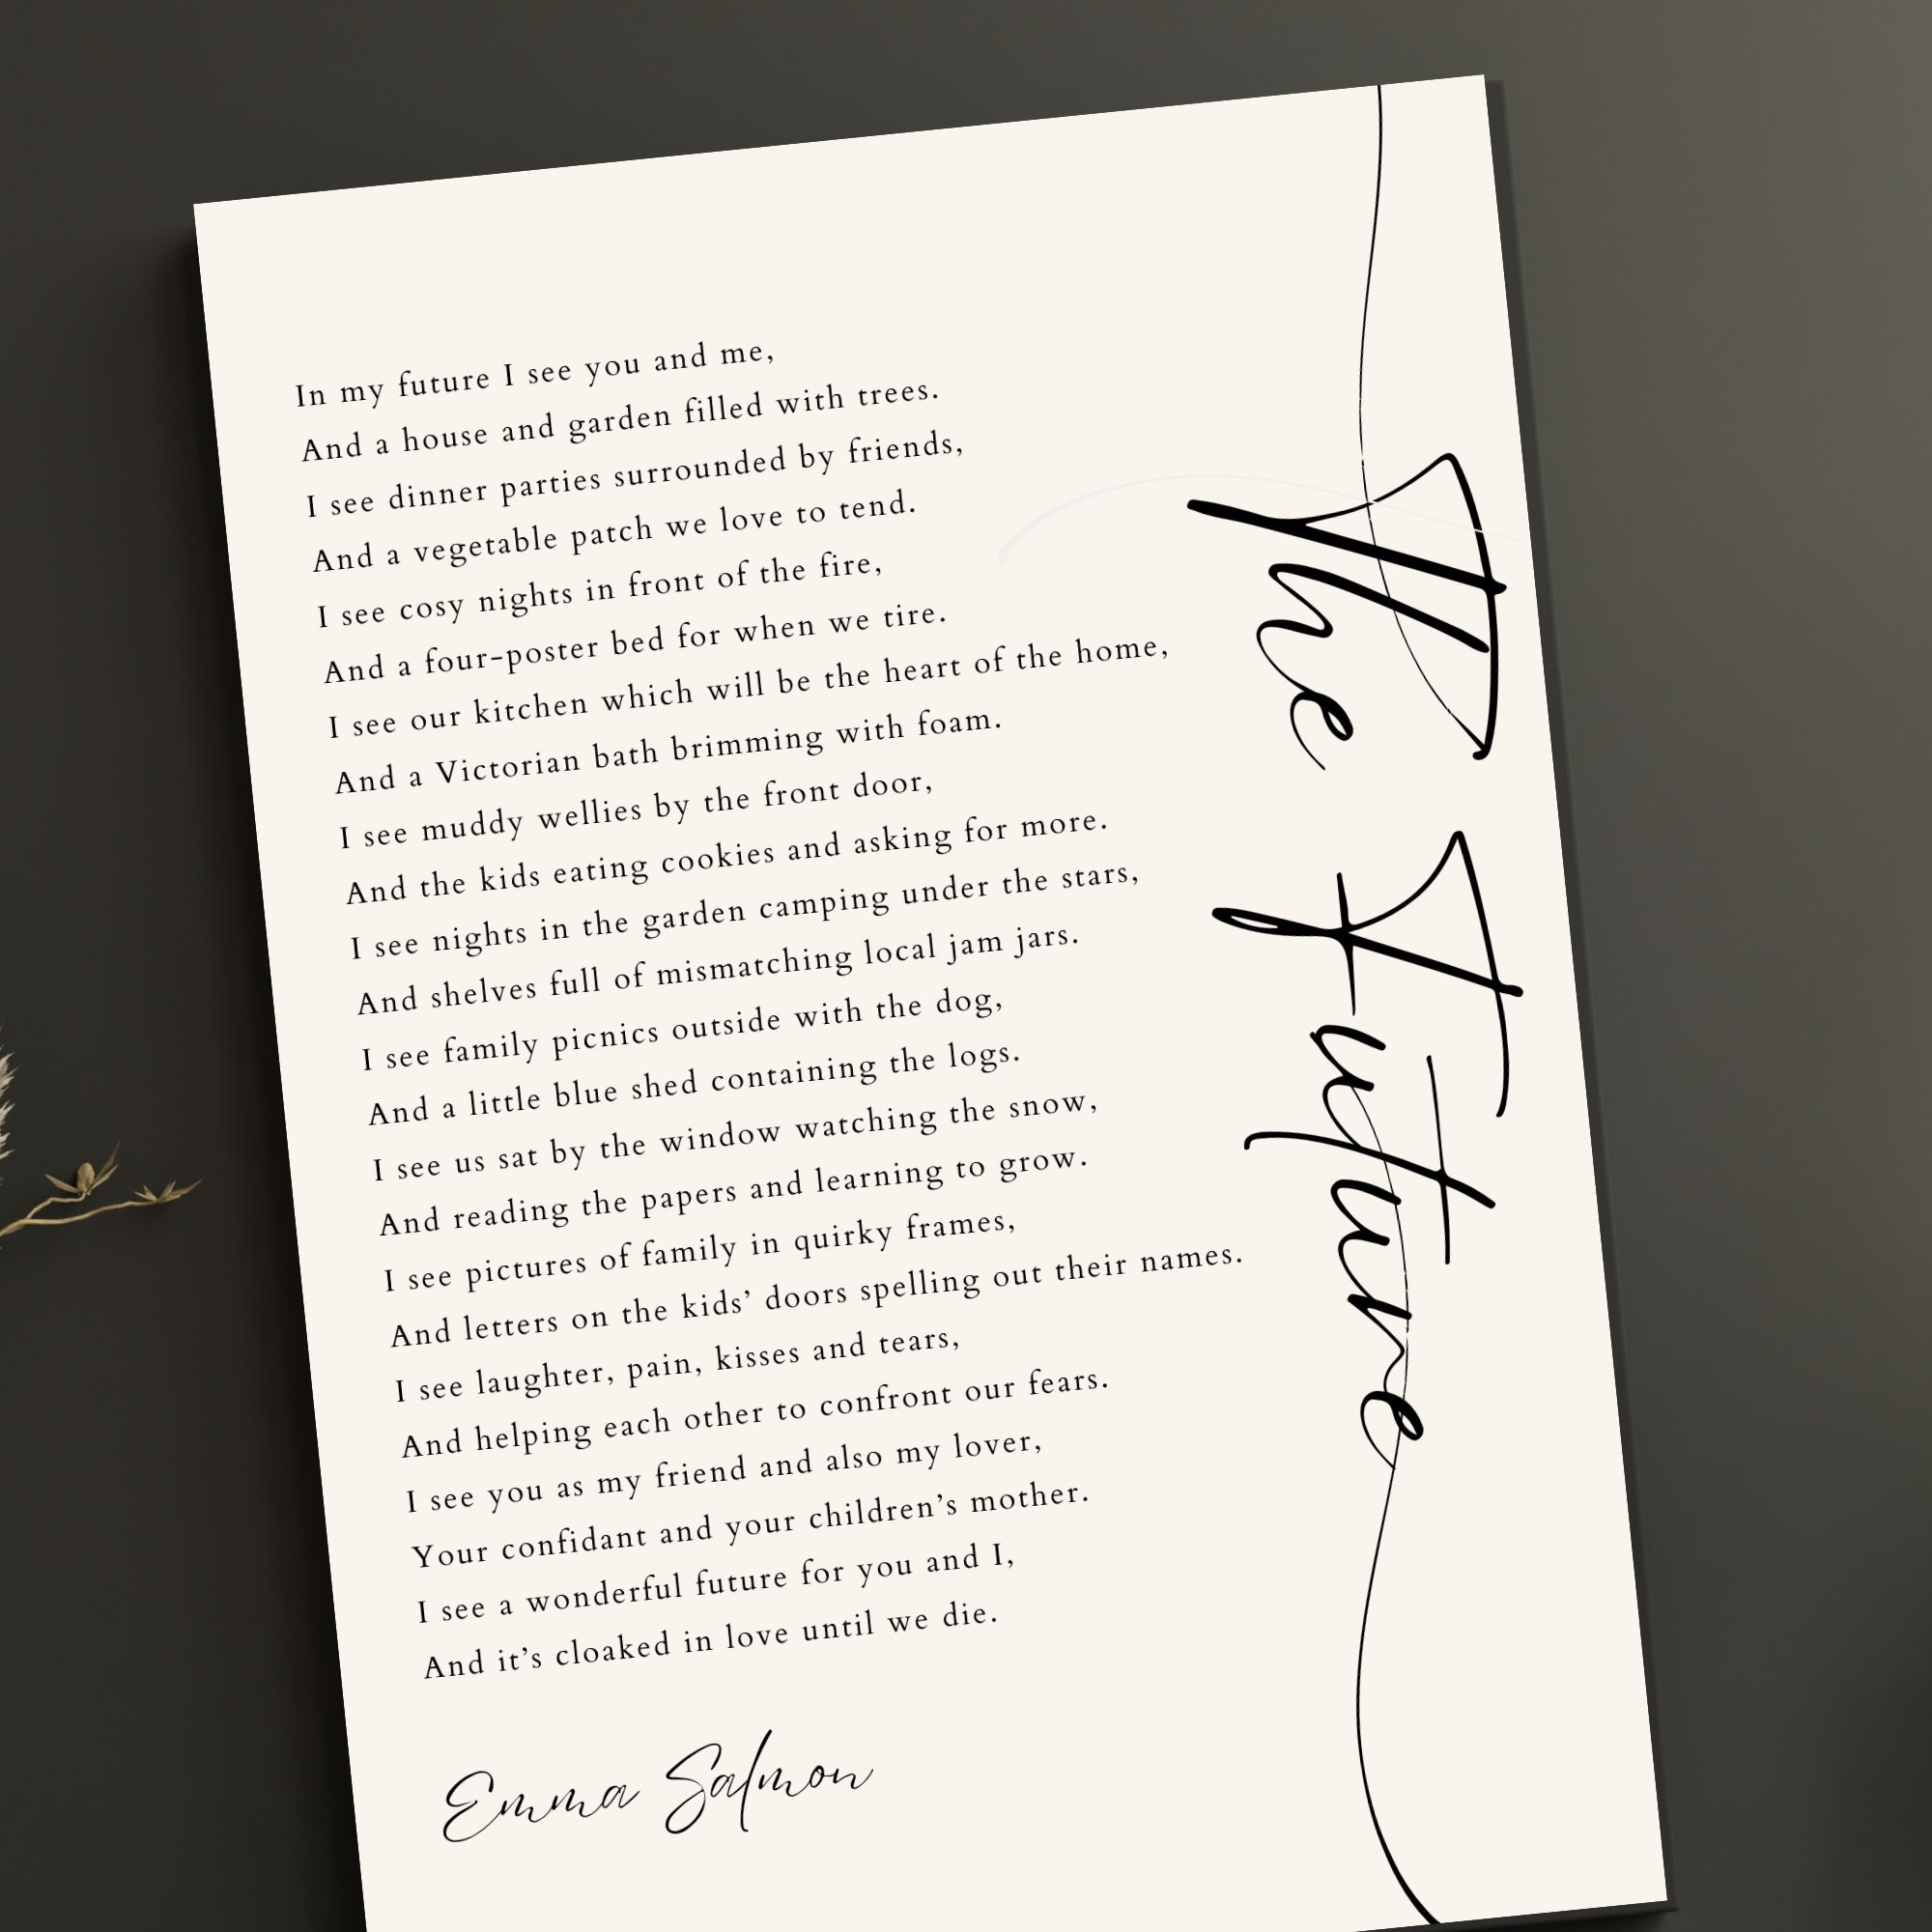 The Future
In my future I see you and me,
And a house and garden filled with trees.
I see dinner parties surrounded by friends,
And a vegetable patch we love to tend.
I see cosy nights in front of the fire,
And a four-poster bed for when we tire.
I see our kitchen which will be the heart of the home,
And a Victorian bath brimming with foam.
I see muddy wellies by the front door,
And the kids eating cookies and asking for more.
I see nights in the garden camping under the stars,
And shelves full of mismatching local jam jars.
I see family picnics outside with the dog,
And a little blue shed containing the logs.
I see us sat by the window watching the snow,
And reading the papers and learning to grow.
I see pictures of family in quirky frames,
And letters on the kids’ doors spelling out their names.
I see laughter, pain, kisses and tears,
And helping each other to confront our fears.
I see you as my friend and also my lover,
Your confidant and your children’s mother.
I see a wonderful future for you and I,
And it’s cloaked in love until we die.
Emma Salmon